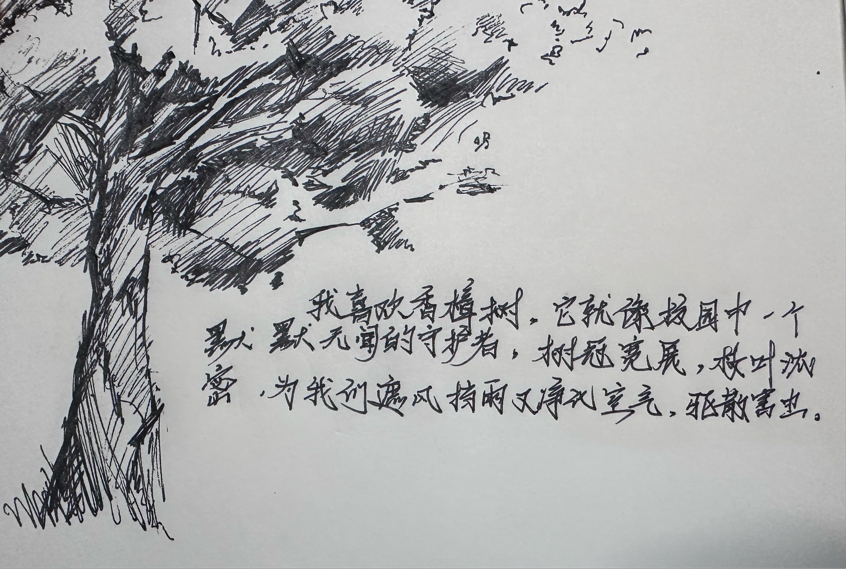 我喜欢香樟树。它就像校园中一个
默默无闻的守护者，树冠宽展，枝叶浓
密，为我们遮风挡雨又净化空气，驱散害虫。